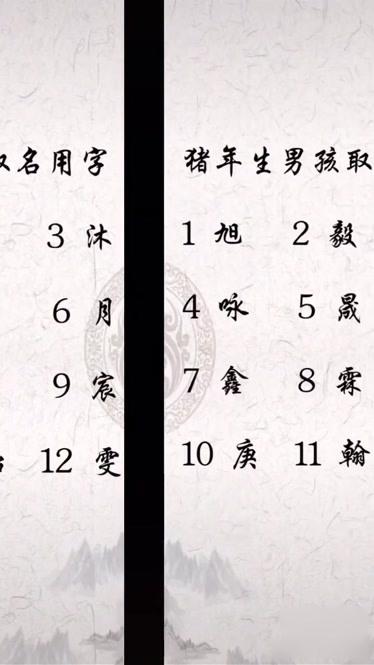 名用字
3 沐
6 月
9 宸
12 雯
猪年生男孩取
1 旭 2 毅
4 咏 5 晟
7 鑫 8 霖
10 庚 11 翰